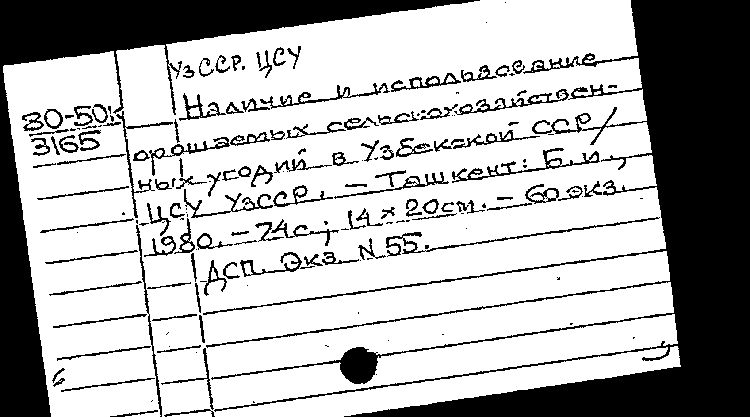 УзССР. ЦСУ
30-50к
3165
Наличие и использование
орошаемых сельскохозяйствен-
ных угодий в Узбекской ССР/
ЦСУ УзССР. – Ташкент: Б.и.,
1980. – 74с.; 14 × 20см. – 60 экз.
ДСП. Экз. N 55.
б